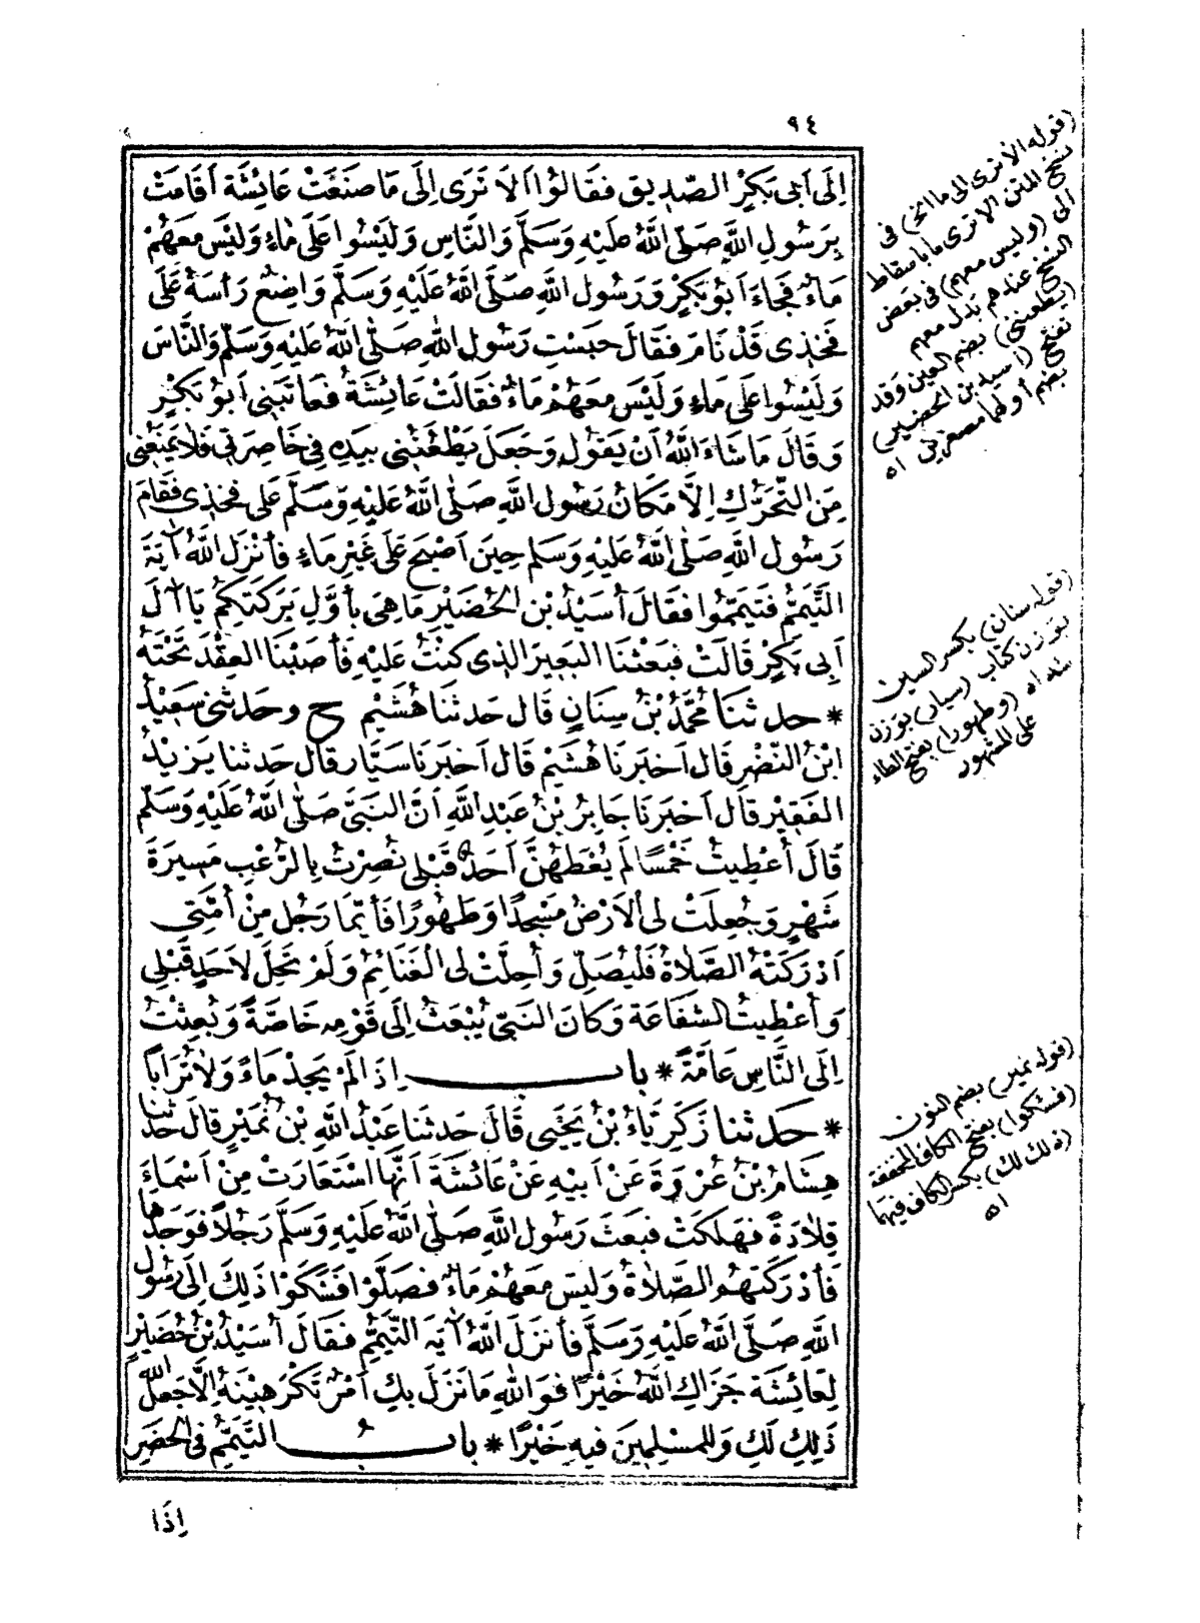 ٩٤
إِلَى أَبِى بَكْرٍ الصِّدِيقِ فَقَالُوْا اَلَا تَرَى إِلَى مَا صَنَعَتْ عَائِشَة أَقَامَتْ
بِرَسُولِ اللَّهِ صَلَّى اللَّهُ عَلَيْهِ وَسَلَّمَ وَالنَّاسِ وَلَيْسُوا عَلَى مَاءٍ وَلَيْسَ مَعَهُمْ
مَاءٌ فَجَاءَ أَبُو بَكْرٍ وَرَسُول اللَّهِ صَلَّى اللَّهُ عَلَيْهِ وَسَلَّمَ وَاضِعٌ رَأْسَهُ عَلَى
فَخِذِى قَدْ نَامَ فَقَالَ حَبَسْتِ رَسُول اللهِ صَلَّى اللهُ عَلَيْهِ وَسَلَّمَ وَالنَّاسَ
وَلَيْسُوا عَلَى مَاءٍ وَلَيْسَ مَعَهُمْ مَاءٌ فَقَالَتْ عَائِشَةُ فَعَاتَبَنِى أَبُو بَكْرٍ
وَقَالَ مَا شَاءَ اللَّهُ أَنْ يَقُولَ وَجَعَلَ يَطْعُنُنِى بِيَدِهِ فِى خَاصِرَتِى فَلَا يَمْنَعُنِى
مِنَ التَّحَرُّكِ إِلَّا مَكَانُ رَسُول اللَّهِ صَلَّى اللَّهُ عَلَيْهِ وَسَلَّمَ عَلَى فَخِذِى فَقَامَ
رَسُول اللَّهِ صَلَّى اللَّهُ عَلَيْهِ وَسَلم حِينَ أَصْبَحَ عَلَى غَيْرِ مَاءٍ فَأَنْزَلَ اللَّهُ آيَةَ
التَّيَمُّمِ فَتَيَمَّمُوا فَقَالَ أُسَيْدُ بْن الْحُضَيْرِ مَا هِىَ بِأَوَّلِ بَرَكَتِكُمْ يَا آلَ
أَبِى بَكْرٍ قَالَتْ فَبَعَثْنَا الْبَعِيرَ الذِى كُنْتُ عَلَيْهِ فَأَصَبْنَا الْعِقْدَ تَحْتَهُ
* حدثنا مُحَمَّدُ بْنُ سِنَانٍ قَال حَدثنَا هُشَيْم ح وحَدثنى سَعِيدُ
ابْنُ النَّضْرِ قَالَ أَخبَرنَا هُشَيْم قَالَ أخبَرنَا سَيَّار قَالَ حَدثنا يَزِيدُ
الفَقِيْر قَالَ أَخبَرنَا جَابِرُ بْنُ عَبْدِ اللَّهِ أَنَّ النَبِىَّ صَلَّى اللَّهُ عَلَيْهِ وَسَلَّمَ
قَالَ أُعْطِيتُ خَمْسًا لَمْ يُعْطَهُنَّ أَحَدٌ قَبْلِى نُصِرْتُ بِالرُّعْبِ مَسِيرَةَ
شَهْرٍ وَجُعِلَتْ لِى الْأَرْضُ مَسْجِدًا وَطَهُورًا فَأَيُّمَا رَجُل مِنْ أُمَّتِى
أَدْرَكَتْهُ الصَّلَاةُ فَلْيُصَلِّ وَأُحِلَّتْ لِى الْغَنَائِمُ وَلَمْ تَحِلَّ لِأَحَدٍ قَبْلِى
وَأُعْطِيتُ الشَفَاعَة وَكَانَ النَبِىّ يُبْعَثُ إِلَى قَوْمِهِ خَاصَّةً وَبُعِثْتُ
إِلَى النَّاسِ عَامَّةً * باب إِذَا لَمْ يَجِدْ مَاءً وَلَا تُرَابًا
* حَدثنا زَكَرِيَّاءُ بْنُ يَحْيَى قَالَ حَدثنا عَبْدُ اللَّهِ بْن نُمَيْرٍ قَالَ حَدثنا
هِشَامُ بْنُ عُرْوَةَ عَنْ أَبِيهِ عَنْ عَائِشَةَ أَنَّهَا اسْتَعَارَتْ مِنْ أَسْمَاءَ
قِلَادَةً فَهَلَكَتْ فَبَعَثَ رَسُول اللَّهِ صَلَّى اللَّهُ عَلَيْهِ وَسَلَّمَ رَجُلًا فَوَجَدَهَا
فَأَدْرَكَتْهُم الصَّلَاةُ وَلَيْسَ مَعَهُمْ مَاءٌ فَصَلَّوْا فَشَكَوْا ذَلِكَ إِلَى رَسُول
اللَّهِ صَلَّى اللَّهُ عَلَيْهِ وَسَلَّمَ فَأَنْزَلَ اللَّهُ آيَةَ التَّيَمُّمِ فَقَالَ أُسَيْدُ بْنُ حُضَيْرٍ
لِعَائِشَةَ جَزَاكِ اللَّهُ خَيْرًا فَوَاللهِ مَا نَزَلَ بِكِ أَمْرٌ تَكْرَهِينَهُ إِلَّا جَعَلَ اللَّهُ
ذَلِكِ لَكِ وَلِلمُسْلِمِينَ فِيهِ خَيْرًا * بابُ التَيَمُّمِ فِى الحَضَرِ
إِذَا
(قوله ألا ترى إلى ما الخ) فى
نسخ المتن ألا ترى ما باسقاط
الى (وليس معهم) فى بعض
النسخ عندهم بدل معهم
(يطعننى) بضم العين وقد
تفتح (أسيد بن الحضير)
بضم أولهما مصغرين اه
(قوله سنان) بكسر السين
بوزن كتاب (سيار) بوزن
شداد (وطهورا) بفتح الطاء
على المشهور
(قوله نمير) بضم النون
(فشكوا) بفتح الكاف المخففة
(ذلك لك) بكسر الكاف فيهما
اه